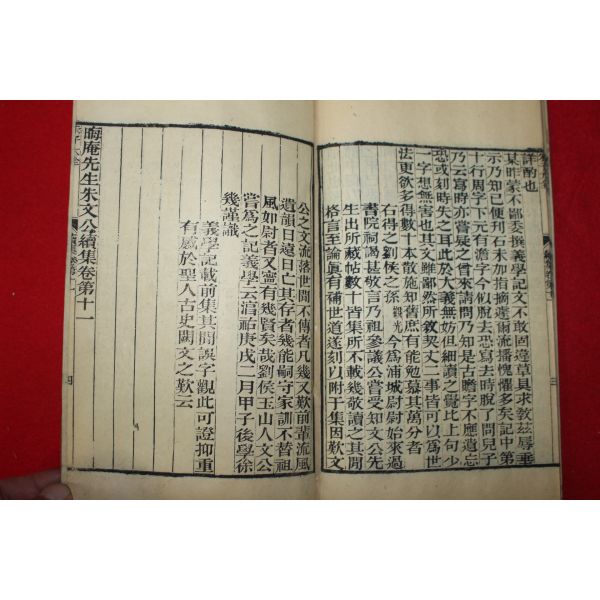 詳酌也
某昨蒙不鄙委撰義學記文不敢固違草具求教茲辱垂
示乃知已便刋石未加指摘遽爾流播愧懼多矣記中第
十行周字下元有澹字今似脫去恐寫去時脫了問兒子
乃云寫時亦嘗疑之曾來請問乃知是古瞻字不應遺忘
恐或刻時失之耳此於大義無妨但細讀之覺比上句少
一字想無害也其文雖鄙然所敘契丈二事皆可以爲世
法更欲多得數十本散施知舊庶有能勉慕其萬分者
右得之劉侯之孫觀光今爲浦城尉尉始來過
書院祠謁甚敬言乃祖參議公嘗受知文公先
生出所藏帖數十皆集所不載幾敬讀之其間
格言至論眞有補世道遂刻以附于集因歎文
公之文流落世間不傳者凡幾又歎前輩流風
遺韻日遠日亡其存者幾能嗣守家訓不替祖
風如尉者又寧有幾賢矣哉劉侯玉山人文公
嘗爲之記義學云淳祐庚戌二月甲子後學徐
幾謹識
義學記載前集其間誤字觀此可證抑重
有感於聖人古史闕文之歎云
晦庵先生朱文公續集卷第十一
朱子大全
四
三